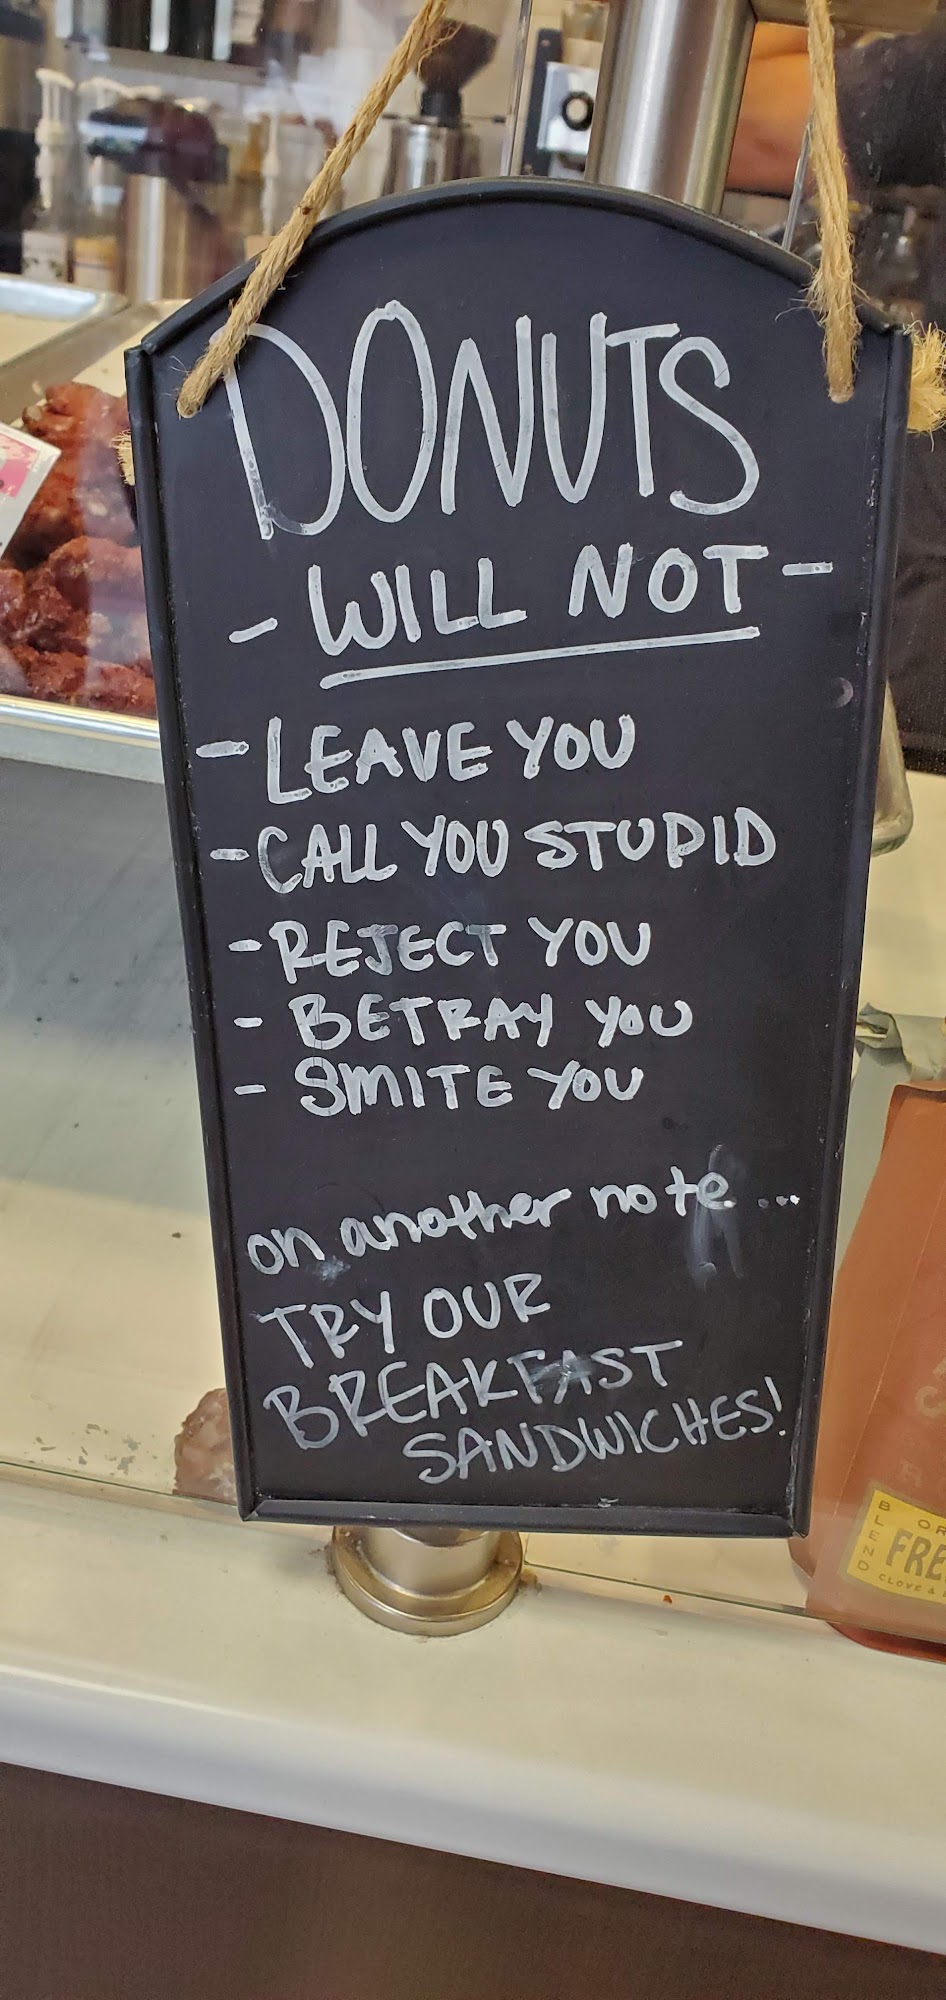 DONUTS
- WILL NOT -
- LEAVE YOU
- CALL YOU STUPID
- REJECT YOU
- BETRAY YOU
- SMITE YOU
on another note...
TRY OUR
BREAKFAST
SANDWICHES!
BLEND
FRE
CLOVE &